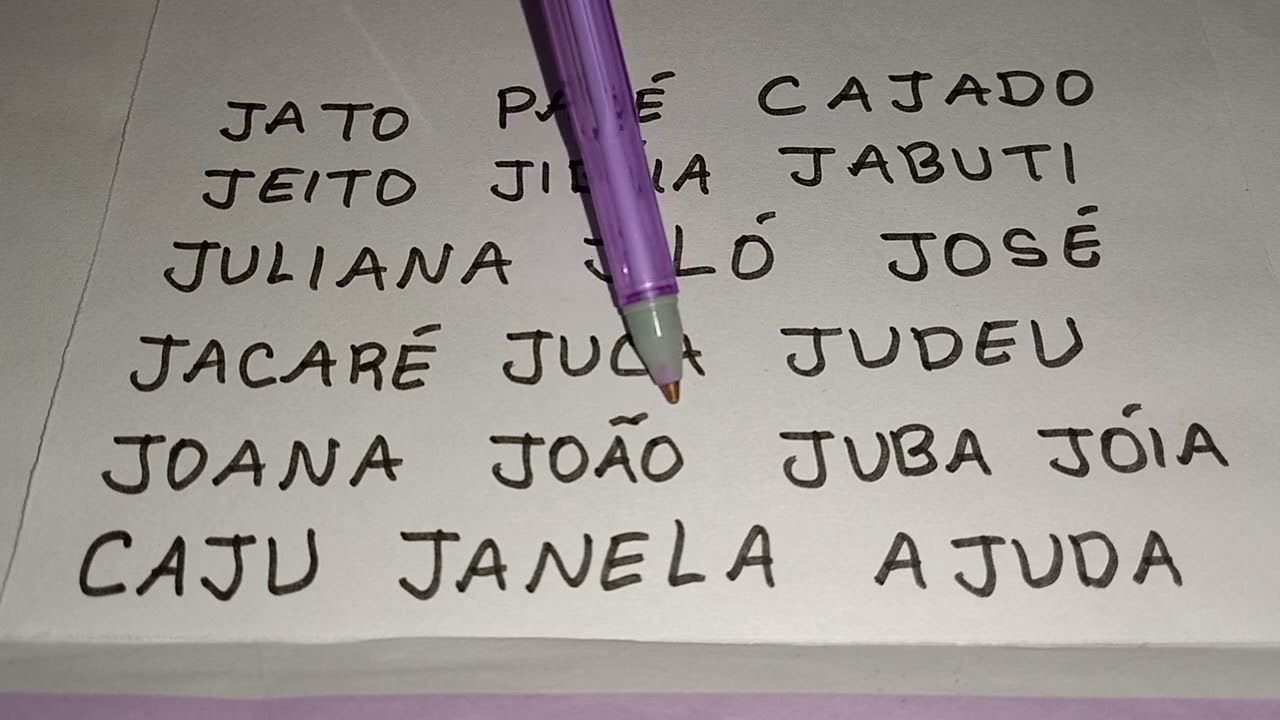 JATO CAJADO
JEITO JABUTI
JULIANA JOSÉ
JACARÉ JUCA JUDEU
JOANA JOÃO JUBA JÓIA
CAJU JANELA AJUDA